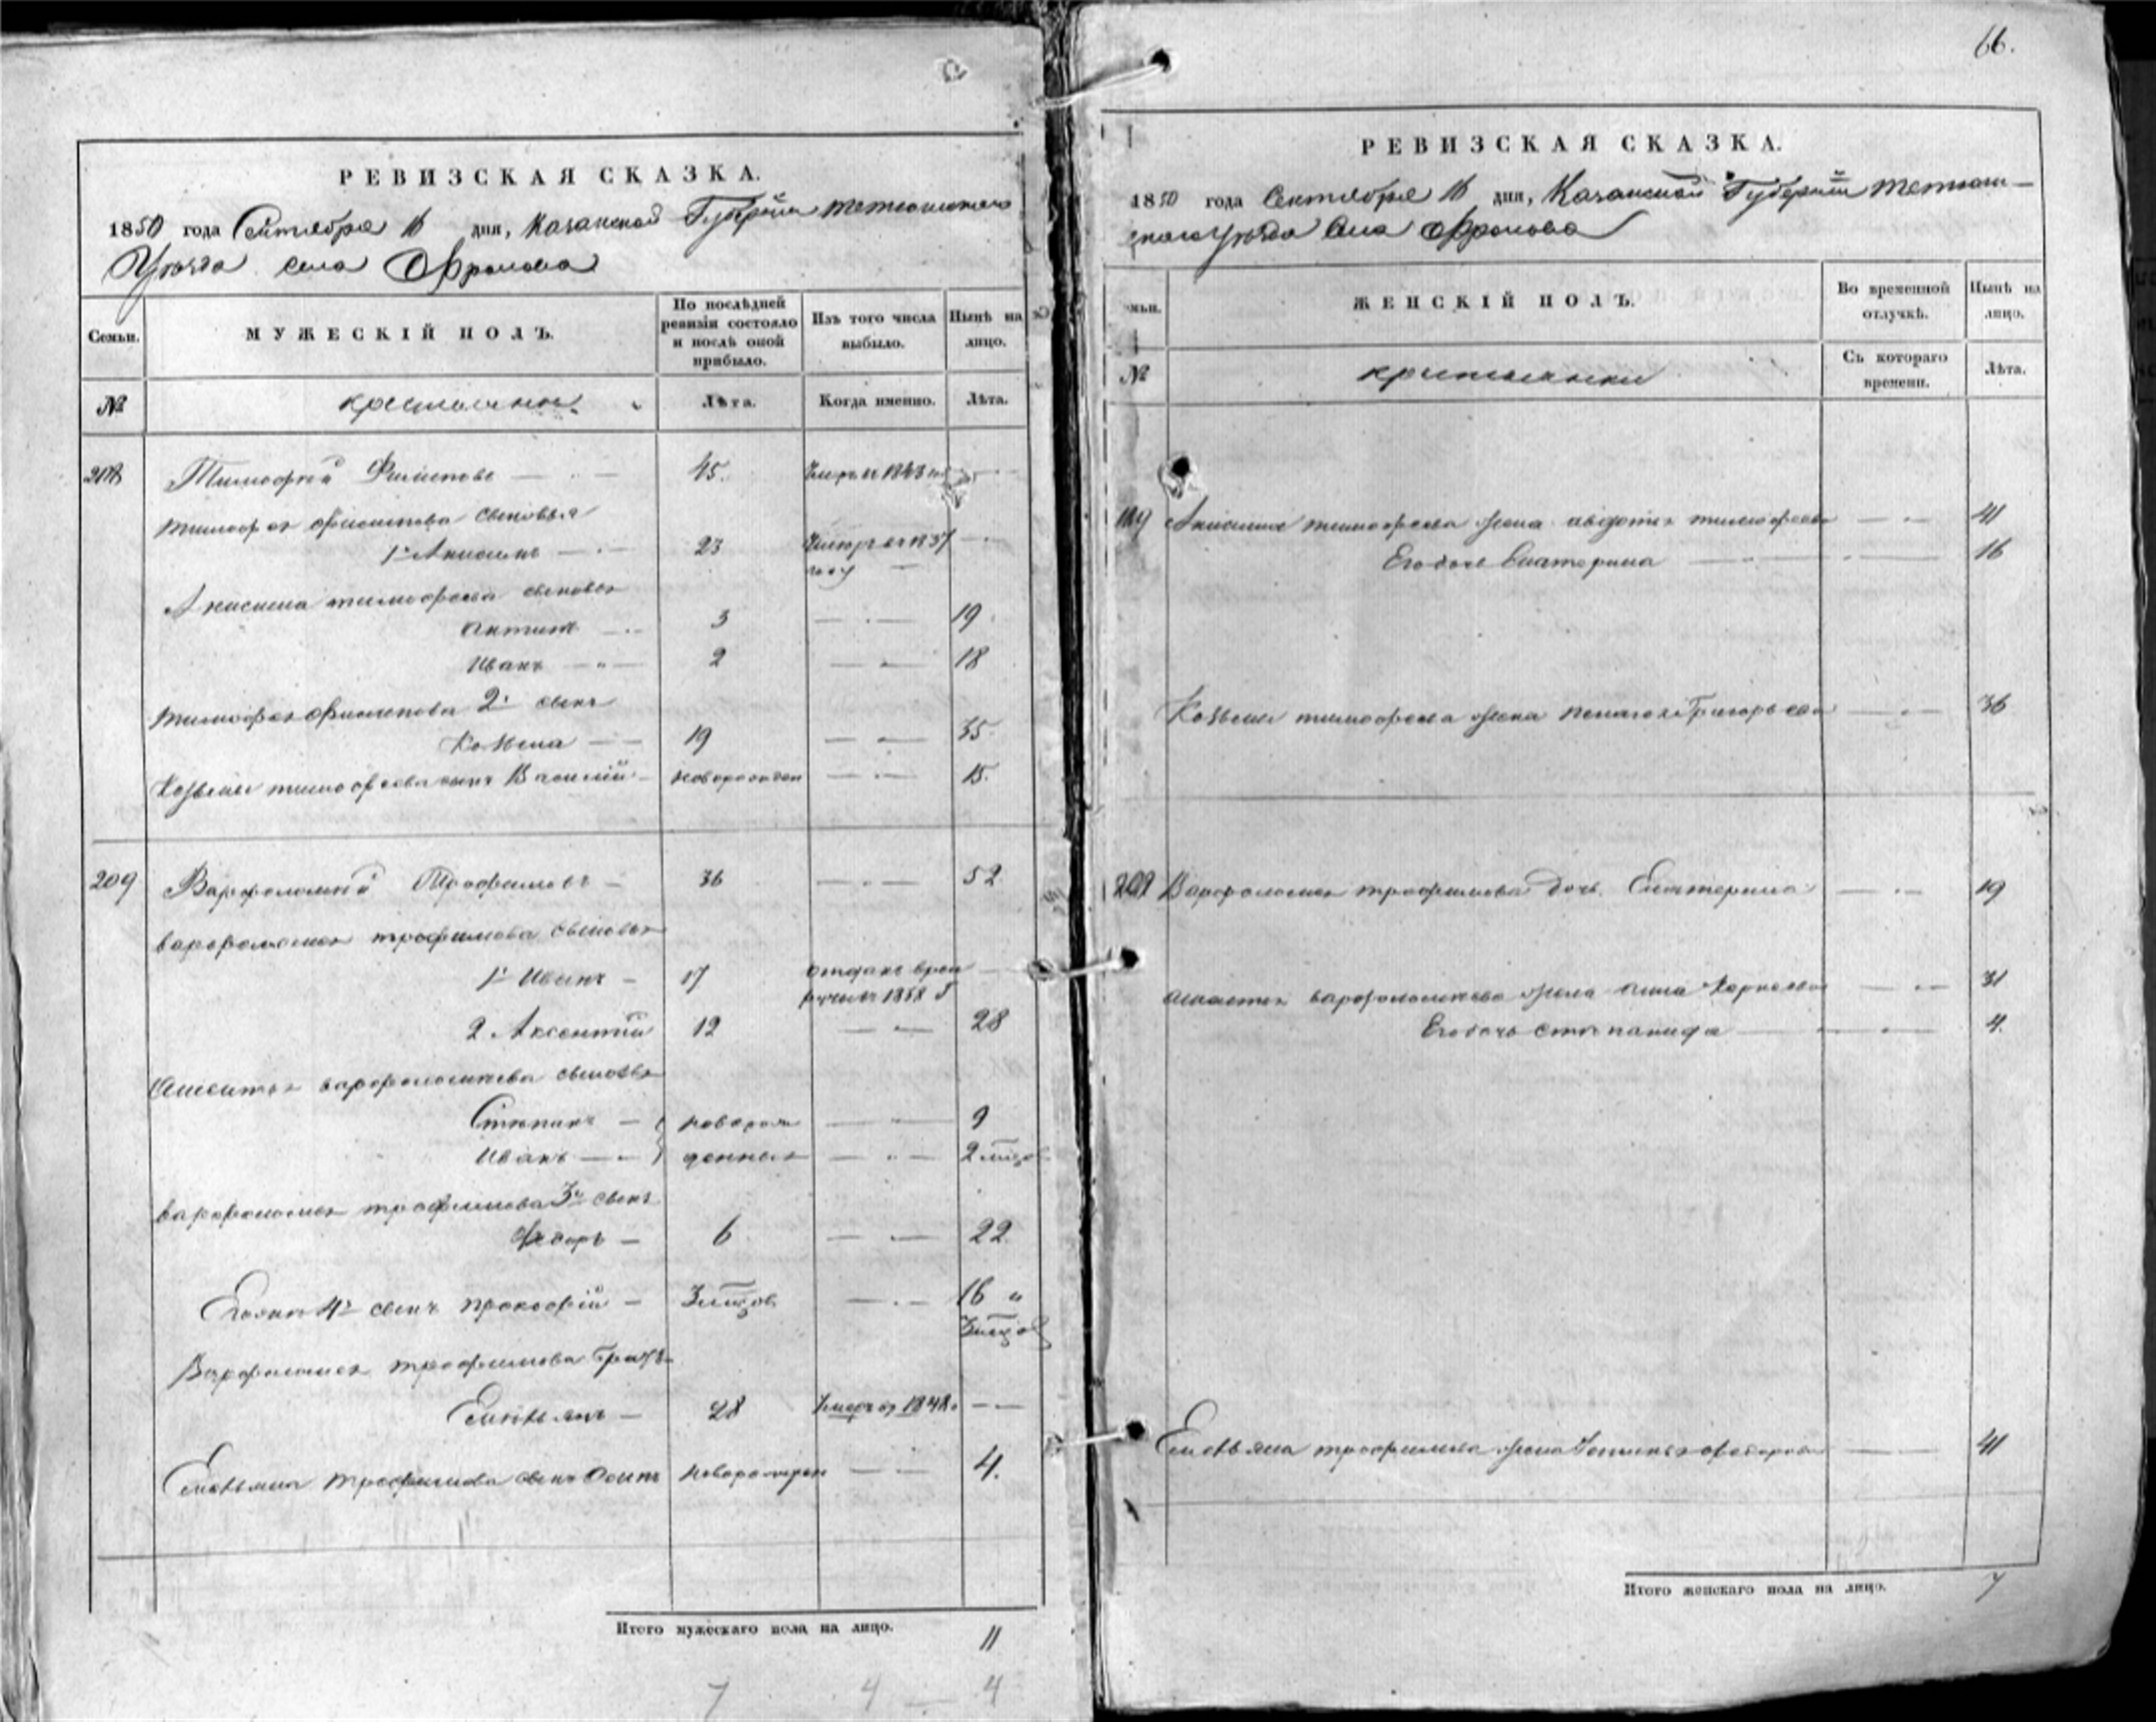 РЕВИЗСКАЯ СКАЗКА.
1850 года Сентября 16 дня, Казанской Губернiи
Уѣзда села Фролова
Семьи.
МУЖЕСКІЙ ПОЛЪ.
По послѣдней ревизіи состояло и послѣ оной прибыло.
Изъ того числа выбыло.
Нынѣ на лицо.
№
крестьяне
Лѣта.
Когда именно.
Лѣта.
208 Тимофей 45. —
Тимофея сыновья
1й Анисимъ — 23
году
Анисима тимофеева сыновья
3 — 19
Иванъ — 2 — 18
Тимофея 2й сынъ
Козьма — 19 — 35
Козьмы тимофеева сынъ Василій — новорожден — 15.
209 Варфоломей Трофимовъ — 36 — 52
варфоломея трофимова сыновья
1й Иванъ — 17 отданъ врек
руты 1838 г
2 Аксентій 12 — 28
варфоломеева сыновья
Степанъ — новорож — 9
Иванъ — денныя — 2 мѣсяц
варфоломея трофимова 3й сынъ
Федоръ — 6 — 22
Егоже 4й сынъ прокофій — 3 мѣсяцов — 16 "
3 мѣсяцов
Варфоломея трофимова братъ
Емельянъ — 28 умеръ въ 1848 г —
Емельяна трофимова сынъ Осипъ новорожден — 4.
Итого мужескаго пола на лицо. 11
7 4 — 4
66.
РЕВИЗСКАЯ СКАЗКА.
1850 года Сентября 16 дня, Казанской Губерніи Тетюш-
скаго Уѣзда Села Фролова
ЖЕНСКІЙ ПОЛЪ.
Во временной отлучкѣ.
Нынѣ на лицо.
№
крестьянки
Съ котораго времени.
Лѣта.
Анисима тимофеева жена авдотья тимофеева — 41
Его дочь Екатерина — 16
Козьмы тимофеева жена пелагея Григорьева — 36
209 Варфоломея трофимова дочь Екатерина — 19
варфоломеева жена анна — 31
Его дочь степанида — 4.
Емельяна трофимова жена федорова — 41
Итого женскаго пола на лицо. 7